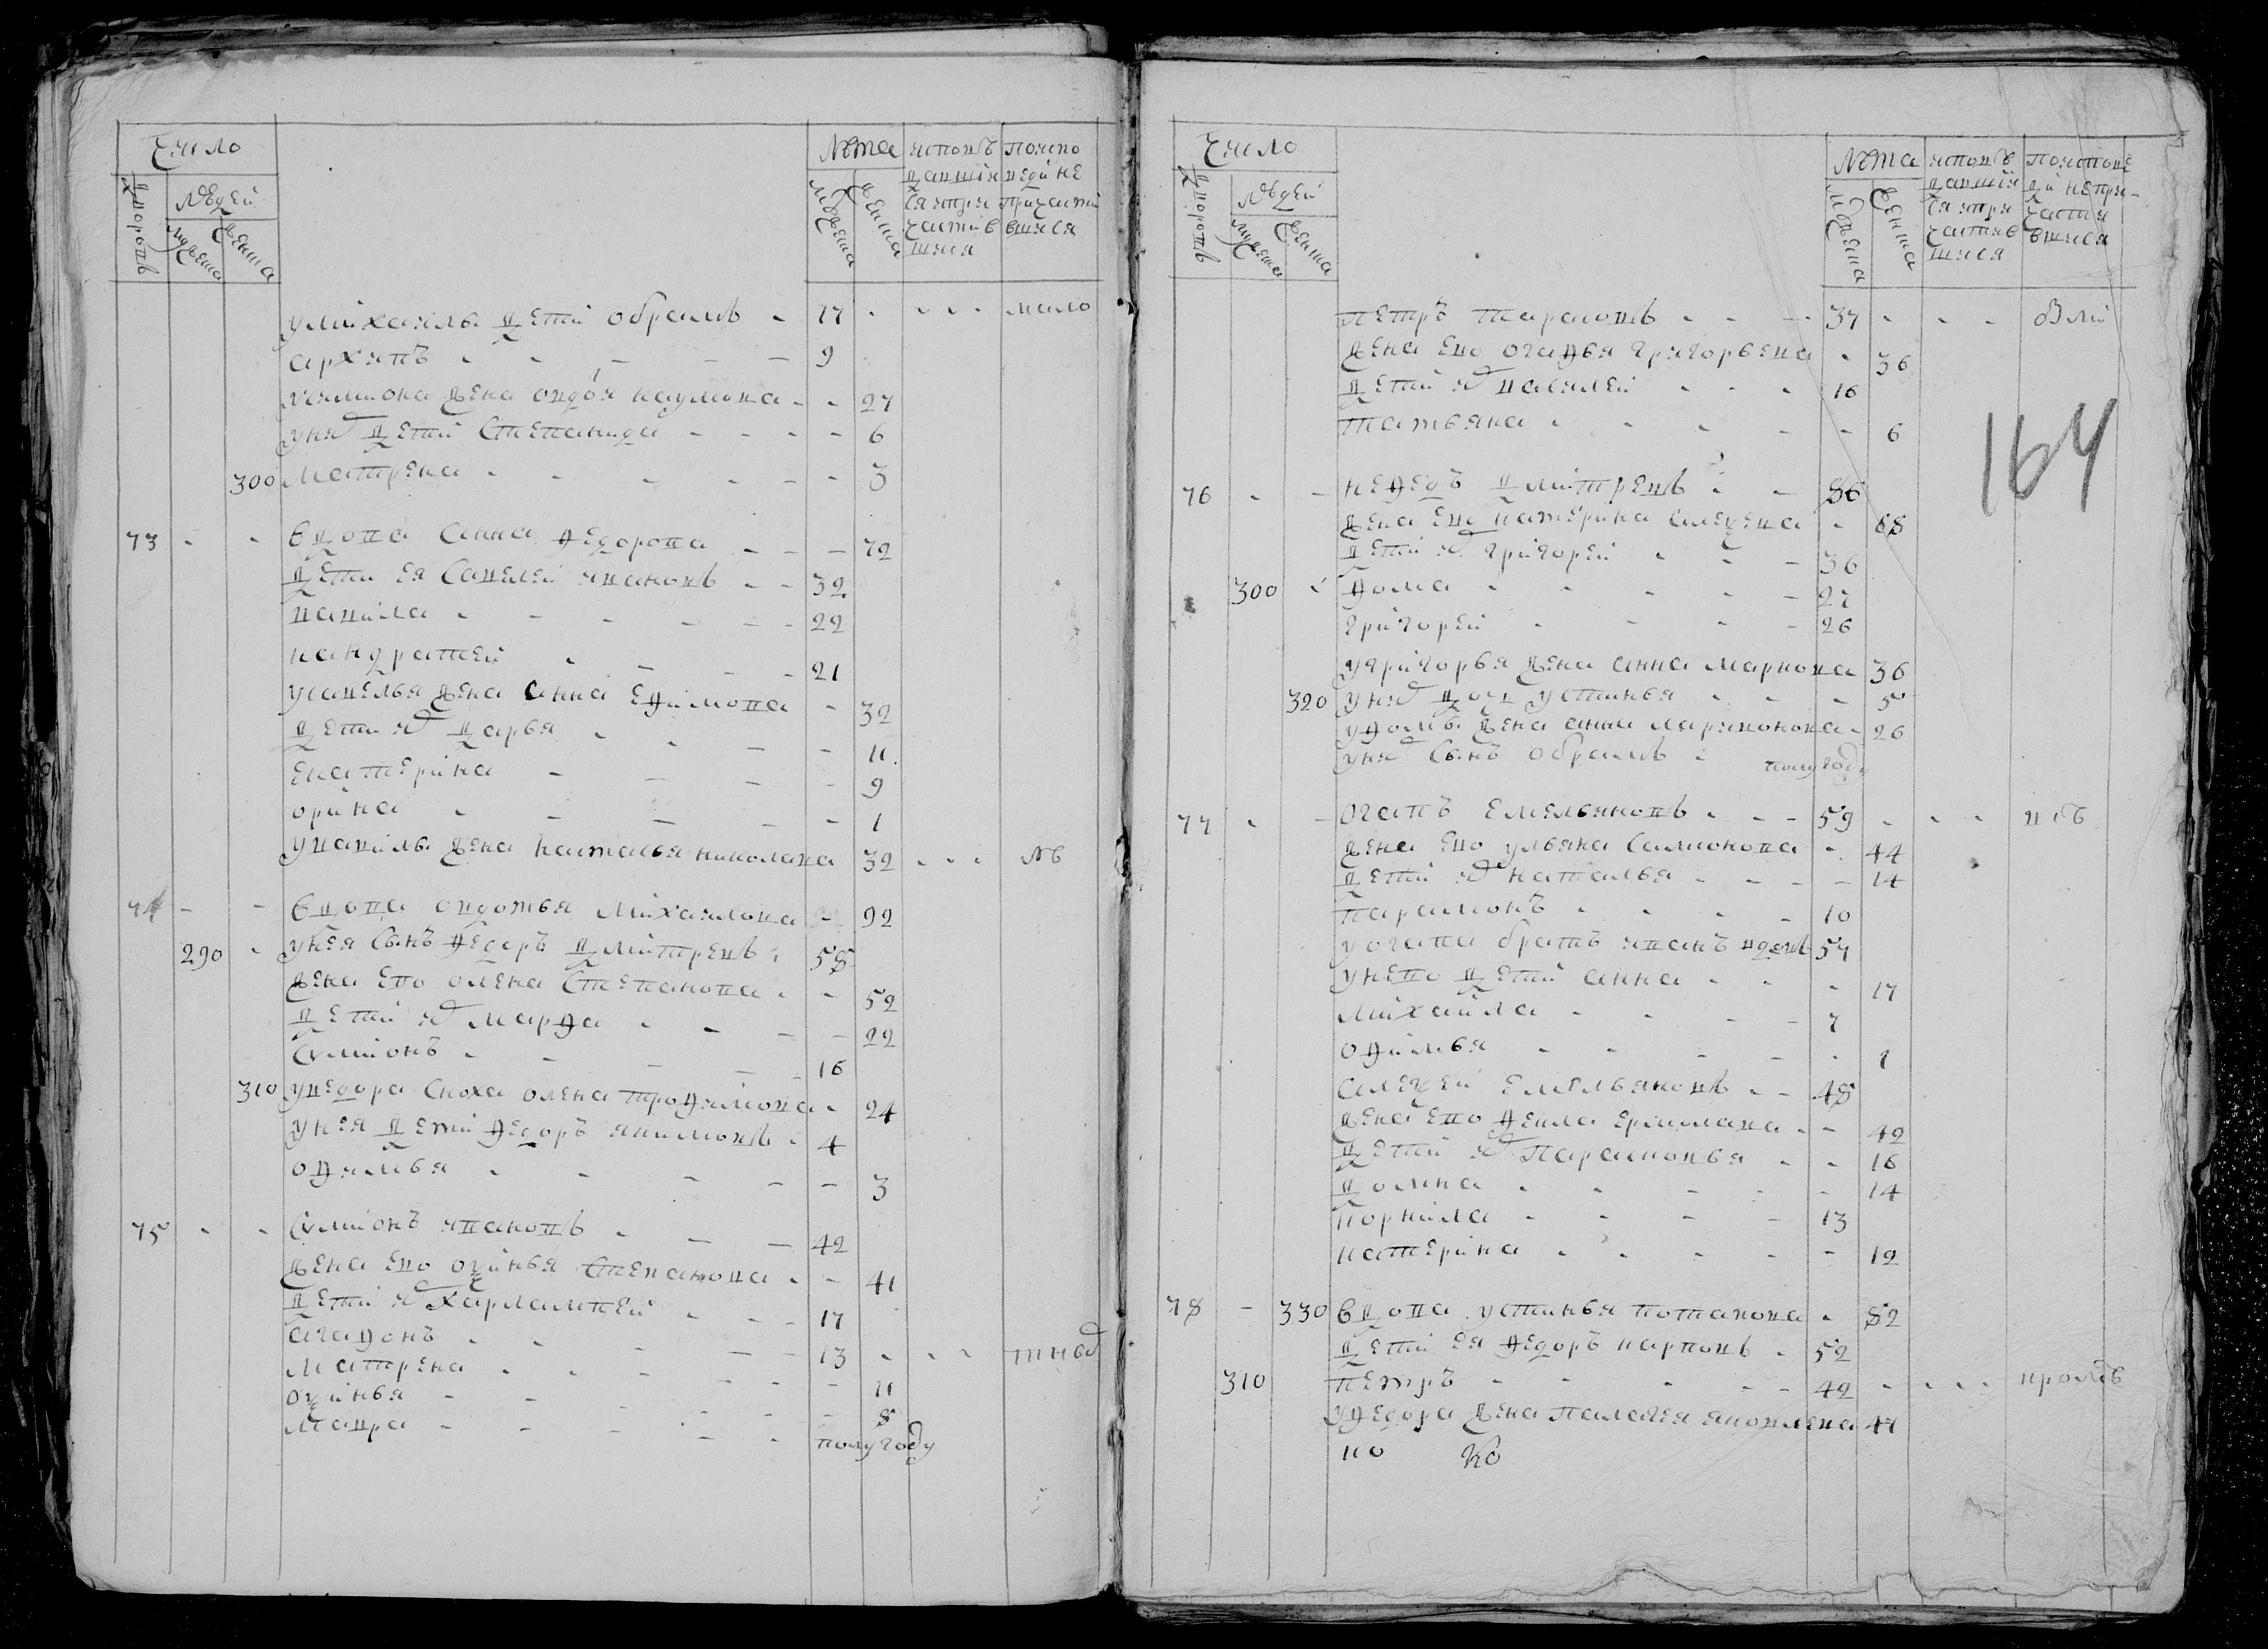 Число
Дворовъ
Людей
мужеска
женска
Лѣта
мужеска
женска
исповѣ
давшия
ся и при
частив
шися
по испо
веди не
причасти
вшися
у михаилы дети обрамъ 17 мало
архипъ 9
жена овдотя наумова 27
у них дети степанида 6
300 матрена 3
73 вдова анна федорова 72
дети ея савелей ивановъ 32
данила 22
кандратей 21
у савелья жена анна ефимова 32
дети их дарья 11
катерина 9
орина 1
у данилы жена наталья 32
74 вдова овдотья михаилова 92
290 у нея сынъ федоръ дмитревъ 58
жена его олена степанова 52
дети их марфа 22
симионъ 16
310 у федора сноха олена трофимова 24
у нея дети федоръ 4
офимья 3
75 симионъ ивановъ 42
жена ево оксинья степанова 41
дети их харлампей 17
агафонъ 13
матрена 11
оксинья 8
мавра полугоду
Число
Дворовъ
Людей
мужеска
женска
Лѣта
мужеска
женска
исповѣ
давшия
ся и при
частив
шися
по испове
ди не при-
части
вшися
164
петръ тарасовъ 37
жена ево огафья григорьева 36
дети их василей 16
татьяна 6
76 нефедъ дмитревъ 86
жена ево катерина алексева 68
дети их григорей 36
300 фома 27
григорей 26
у григорья жена анна маркова 36
320 у них дочь устинья 5
у фомы жена анна 26
у них сынъ обрамъ полугоду
77 огапъ емельяновъ 59
жена ево ульяна самсонова 44
дети их наталья 14
парамонъ 10
у огапа братъ иванъ вдовъ 57
у нево дети анна 17
михаила 7
офимья 1
алексей емельяновъ 48
жена ево фекла ермилава 42
дети их парасковья 16
домна 14
корнила 13
катерина 12
78 330 вдова устинья потапова 82
дети ея федоръ карповъ 52
310 петръ 42
у федора жена палагея яковлева 47
но ко